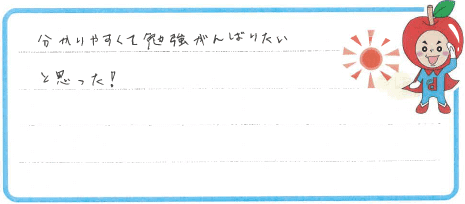 分かりやすくて勉強がんばりたい
と思った!
d